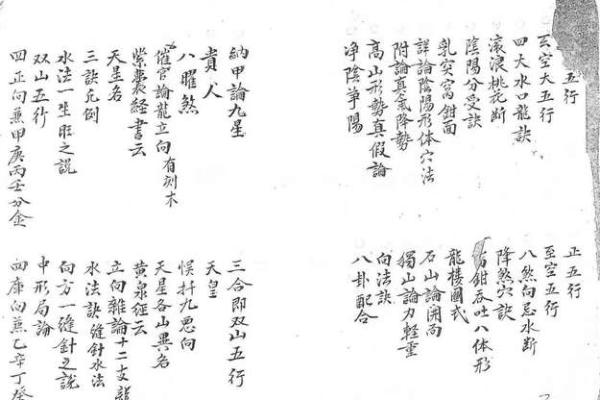 五行
正五行
玄空大五行
至空五行
四大水口龍訣
八煞向忌水斷
滾浪桃花斷
降煞穴訣
陰陽分受訣
鉗吞吐八体形
乳突窩鉗面
龍樓圖式
詳論陰陽形体穴法
石山論開面
附論真氣降勢
獨山論力輕重
高山形勢真假論
向法訣
净陰净陽
八卦配合
納甲論九星
三合即双山五行
貴人
天皇
八曜煞
悞扦九恶向
催官論龍立向有刻木
天星各山異名
紫囊経書云
黄泉經云
天星名
立向雜論十二支龍
三訣凡例
水法訣縫針水法
水法一生取之説
向方一縫針之説
双山五行
中形局論
四正向兼甲庚丙壬分金
四庫向兼乙辛丁癸